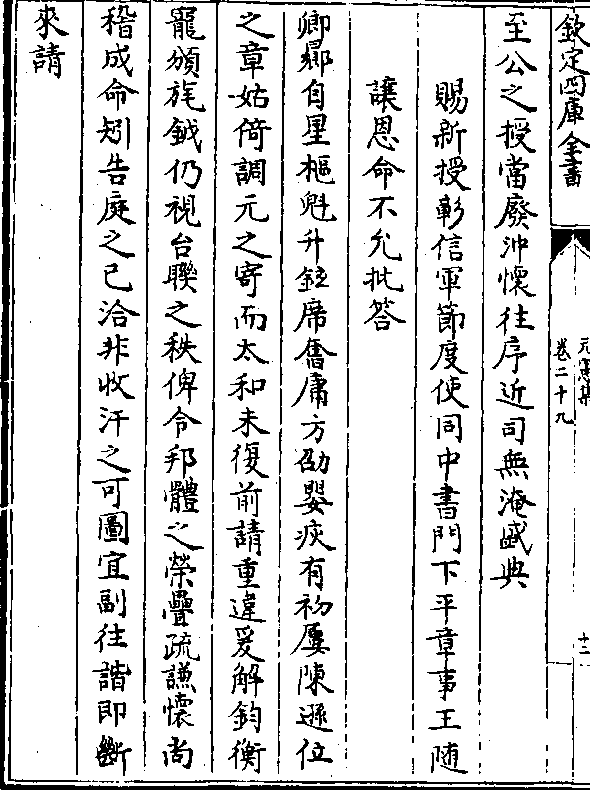 欽定四庫全書
元憲集
卷二十九
十二
至公之授當廢沖懷往序近司無淹盛典
賜新授彰信軍節度使同中書門下平章事王隨
讓恩命不允批答
卿曏自星樞魁升鉉席奮庸方劭嬰疾有初屢陳遜位
之章姑倚調元之寄而太和未復前請重違爰解鈞衡
寵頒旄鉞仍視台聯之秩俾令邦體之榮疊疏謙懷尚
稽成命矧告庭之已洽非收汗之可圖宜副往諧即斷
來請